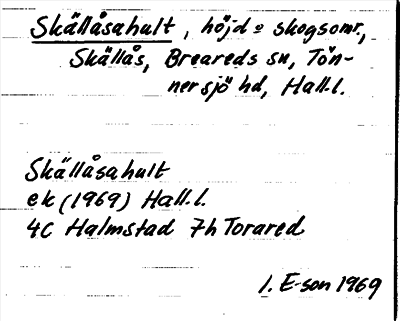 Skällåsahult, höjd o skogsomr.,
Skällås, Breareds sn, Tön-
nersjö hd, Hall.l.
Skällåsahult
ek (1969) Hall.l.
4C Halmstad 7h Torared
I. E-son 1969